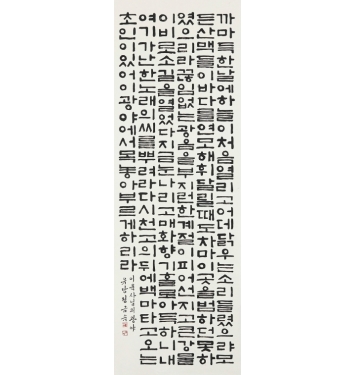 까마득한날에하늘이처음열리고어데닭우는소리들렸으랴모
든산맥들이바다를연모해휘달릴때도차마이곳을범하던못하
였으리라끊임없는광음을부지런한계절이피어선지고큰강물
이비로소길을열었다지금눈나리고매화향기홀로아득하니내
여기가난한노래의씨를뿌려라다시천고의뒤에백마타고오는
초인이있어이광야에서목놓아부르게하리라
이육사님의광야